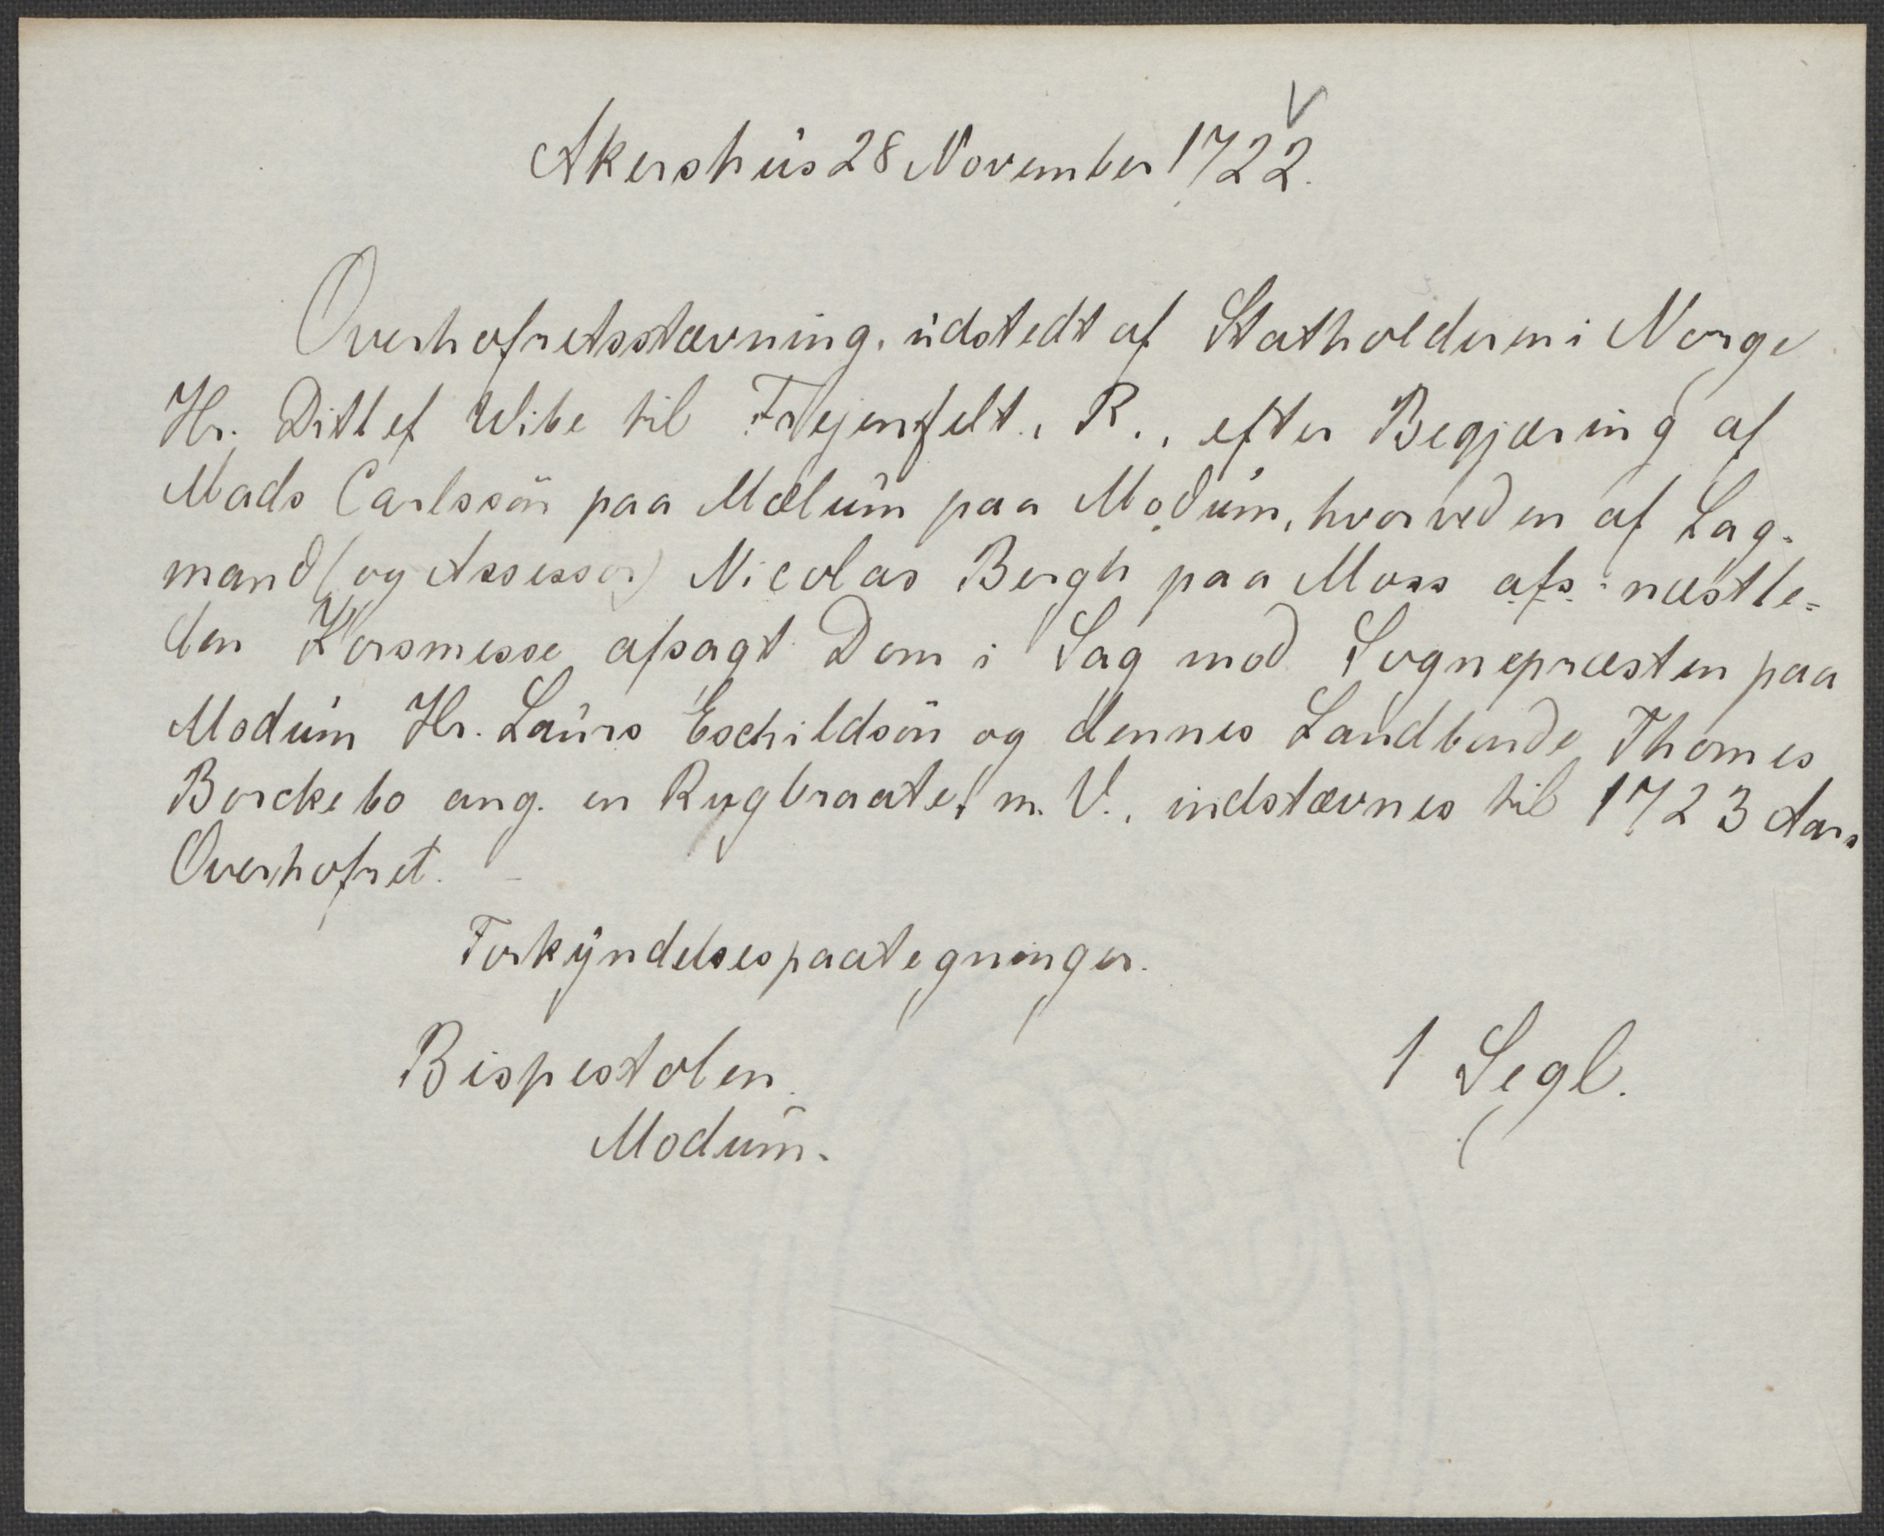 Akershus 28 November 1722.
Overhofretsstævning, udstedt af Statholderen i Norge
Hr. Ditlef Wibe til Frejenfelt, R., efter Begjæring af
Mads Carlssön paa Mælum paa Modum, hvorved en af Lag-
mand (og Assessor) Nicolas Bergh paa Moss afs. næstle-
den Korsmesse afsagt Dom i Sag mod Sognepræsten paa
Modum Hr. Laurs Eschildsön og dennes Landbonde Thomes
Borckebo ang. en Rugbraate, m. V., indstævnes til 1723 Aars
Overhofret.
Forkyndelsespaategninger.
Bispestolen. 1 Segl.
Modum.